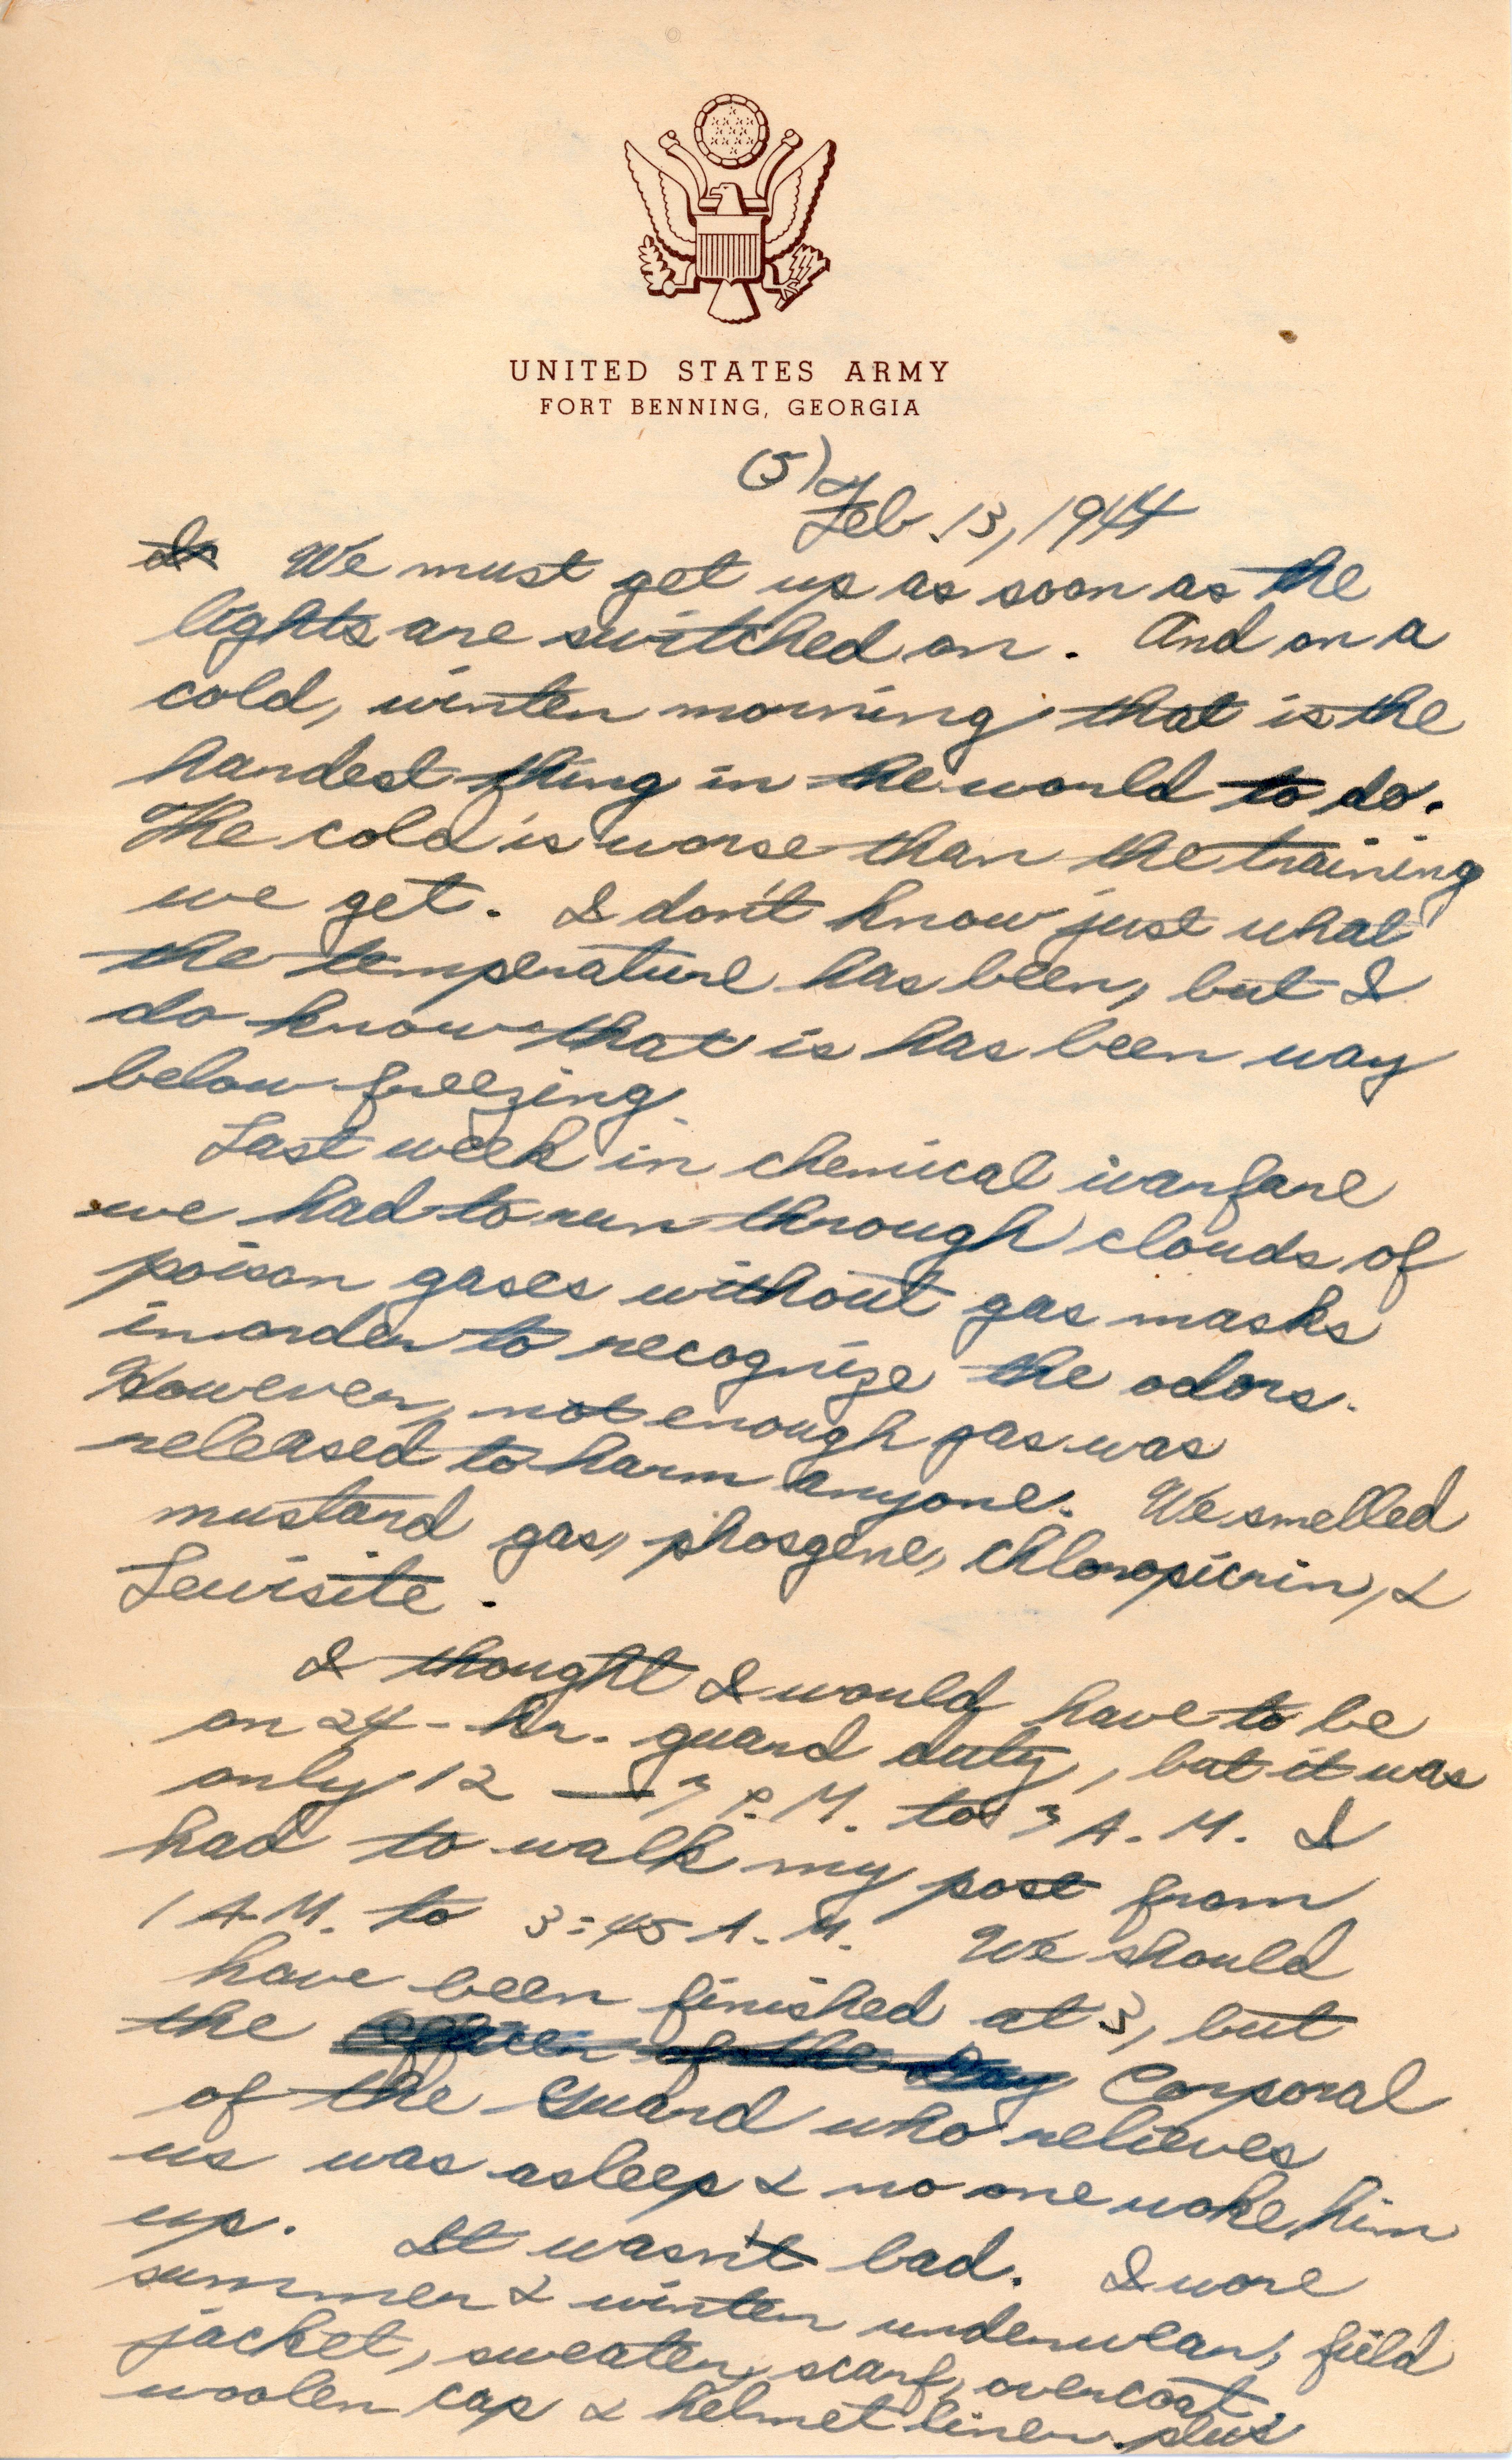 UNITED STATES ARMY
FORT BENNING, GEORGIA
(5)
Feb. 13, 1944
We must get up as soon as the
lights are switched on. And on a
cold, winter morning, that is the
hardest thing in the world to do.
The cold is worse than the training
we get. I don't know just what
the temperature has been, but I
do know that is has been way
below freezing.
Last week in chemical warfare
we had to run through clouds of
poison gases without gas masks
in order to recognize the odors.
However, not enough gas was
released to harm anyone. We smelled
mustard gas, phosgene, chloropicrin, &
Lewisite.
I thought I would have to be
on 24-hr. guard duty, but it was
only 12 — 3 P.M. to 3 A.M. I
had to walk my post from
1 A.M. to 3:45 A.M. We should
have been finished at 3, but
the Officer of the Day Corporal
of the Guard who relieves
us was asleep & no one woke him
up. It wasn't bad. I wore
summer & winter underwear, field
jacket, sweater, scarf, overcoat,
woolen cap & helmet liner plus